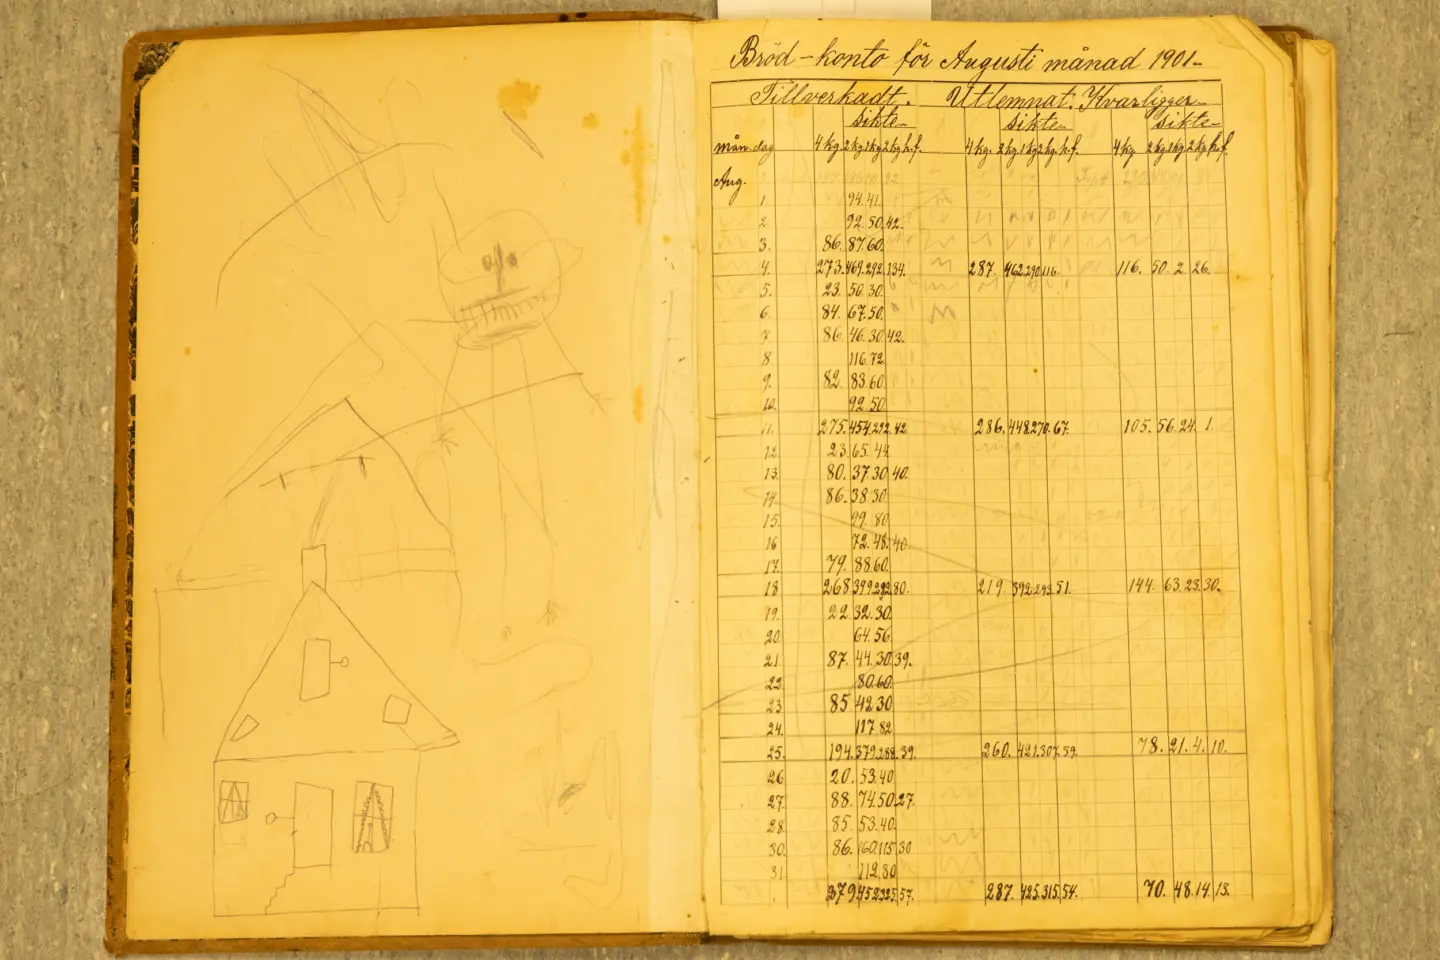 Bröd-konto för Augusti månad 1901.
Tillverkadt. Utlemnat. Kvarligger.
sikte sikte sikte
mån. dag 4 kg 2 kg 1 kg 2 kg h.f. 4 kg. 2 kg 1 kg 2 kg h.f. 4 kg 2 kg 1 kg 2 kg h.f.
Aug.
1. 94. 41.
2. 92. 50. 42.
3. 86. 87. 60.
4. 273. 469. 292. 134. 287. 462. 290. 116. 116. 50. 2. 26.
5. 23. 50. 30.
6. 84. 67. 50.
7. 86. 46. 30. 42.
8 116. 72.
9. 82. 83. 60.
10. 92. 50.
11. 275. 454. 292. 42. 286. 448. 270. 67. 105. 56. 24. 1.
12. 23. 65. 44.
13. 80. 37. 30. 40.
14. 86. 38. 30.
15. 99. 80.
16 72. 48. 40.
17. 79. 88. 60.
18 268 399 292 80. 219. 392. 293. 51. 144. 63. 23. 30.
19. 22 32. 30.
20. 64. 56.
21 87. 44. 30. 39.
22. 80. 60.
23 85 42. 30
24. 117 82
25. 194. 379. 288. 39. 260. 421. 307. 59. 78. 21. 4. 10.
26 20. 53. 40
27. 88. 74. 50. 27.
28. 85. 53. 40.
30. 86. 160. 115. 30
31. 112. 80
279 452 325. 57. 287. 425. 315. 54. 70. 48. 14. 13.